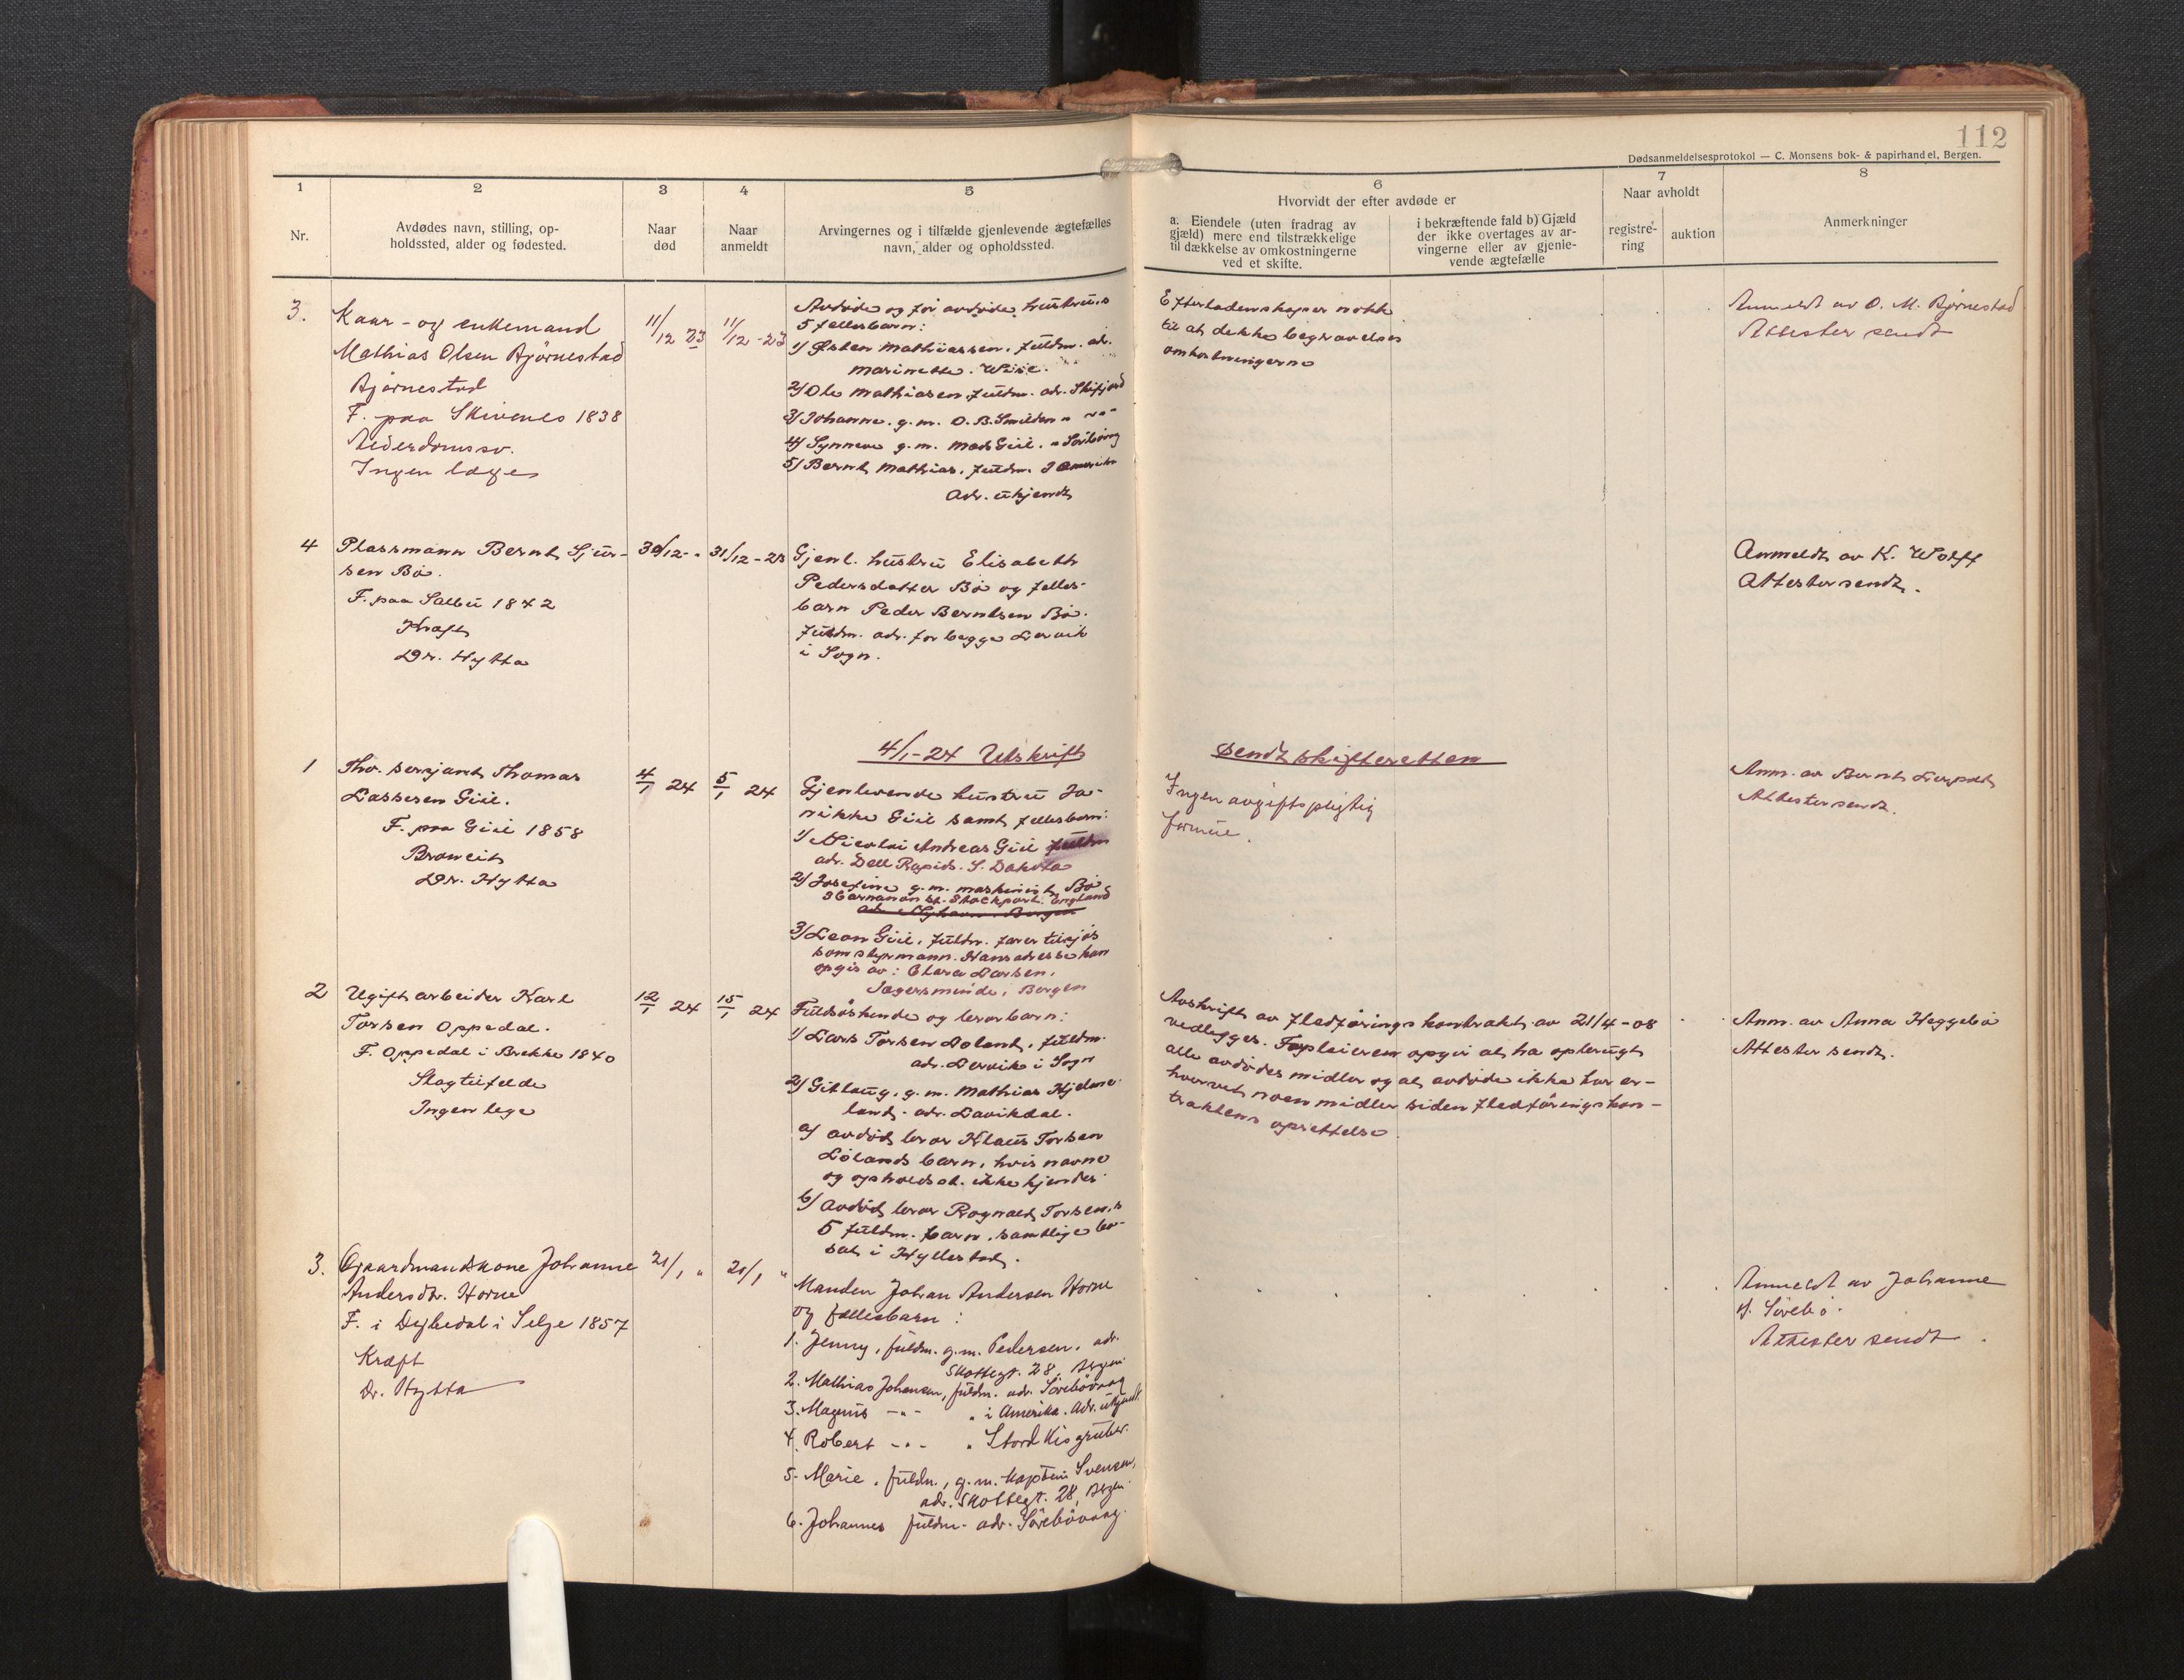 112
Dødsanmeldelsesprotokol — C. Monsens bok- & papirhandel, Bergen.
1
Nr.
2
Avdødes navn, stilling, op-
holdssted, alder og fødested.
3
Naar
død
4
Naar
anmeldt
5
Arvingernes og i tilfælde gjenlevende ægtefælles
navn, alder og opholdssted.
6
Hvorvidt der efter avdøde er
a. Eiendele (uten fradrag av
gjæld) mere end tilstrækkelige
til dækkelse av omkostningerne
ved et skifte.
i bekræftende fald b) Gjæld
der ikke overtages av ar-
vingerne eller av gjenle-
vende ægtefælle
7
Naar avholdt
registre-
ring
auktion
8
Anmerkninger
3.
Kaar- og enkemand
Mathias Olsen Bjørnestad
Bjørnestad
F. paa Skivenes 1838
Alderdomssv.
Ingen læge
11/12 23
11/12 - 23
Avdøde og før avdøde hustrus
5 fellesbarn:
1/ Østen Mathiassen, fuldm. adr.
2/ Ole Mathiasen, fuldm. adr. Skifjord
3/ Johanne. g. m. O. B. Smilden " -"-
4/ Synneve g. m. Mads Giil. " Sörböväg
5/ Bernt Mathias, fuldm. I Amerika
Adr. ukjendt
Efterladenskaper nokk
til at dekke begravelses
omkostningerne
Anmeldt av O. M. Bjørnestad
Attester sendt
4
Plassmann Bernt Sjur-
sen Bø.
F. paa Salbu 1842
Kræft
Dr. Hytta
30/12 - "
31/12 - 23
Gjenl. hustru Elisabeth
Pedersdatter Bø og felles-
barn Peder Berntsen Bø.
fuldm. adr. for begge Lervik
i Sogn.
Anmeldt av K. Wolff
Attester sendt.
4/1 - 24 Utskrift
sendt skifteretten
1
Fhv. sersjant Thomas
Lassesen Giil.
F. paa Giil 1858
Dr. Hytta
4/1 24
5/1 24
Gjenlevende hustru Ja-
nikke Giil samt fellesbarn:
1/ Nicolai Andreas Giil fuldm
adr. Dell Rapids. S. Dakota
2/ Josefine g. m. maskinist Bø
3 Carnanon St. Stockport. England
3/ Leon Giil, fuldm. farer tilsjøs
som styrmann. Hans adresse kan
opgis av: Clara Larsen,
Jægersminde, Bergen
Ingen avgiftspligtig
formue.
Anm. av Bernt
Attester sendt.
2
Ugift arbeider Karl
Torsen Oppedal.
F. Oppedal i Brekke 1840
Slagtilfelde
Ingen lege
12/1 24
15/1 24
Fuldsøskende og brorbarn:
1/ Lars Torsen Loland, fuldm.
adr. Lervik i Sogn
2/ Gitlaug, g. m. Mathias Hjelme-
land. adr. Lavikdal.
a/ avdød bror Klaus Torsen
Lølands barn, hvis navne
og opholdsst. ikke kjendes
b/ avdød bror Ragnald Torsen,s
5 fuldm. barn, samtlige bo-
sat i Hyllestad.
Avskrift av fledføringskontrakt av 21/4 - 08
vedlegges. Forpleieren opgir at ha opbrugt
alle avdødes midler og at avdøde ikke har er-
hvervet noen midler siden fledføringskon-
traktens oprettelse
Anm. av Anna Heggebø
Attester sendt.
3.
Gaardmandskone Johanne
Andersdtr. Horne
F. i Dejbedal i Selje 1857
Kræft
Dr. Hytta
21/1 "
21/1 "
Manden Johan Andersen Horne
og fællesbarn:
1. Jenny, fuldm. g. m. Pedersen, adr.
Skottegt. 28, Bergen
2. Mathias Johansen, fuldm. adr. Sörebövaag
3. Magnus -"- " i Amerika. Adr. ukjendt.
4. Robert -"- " Stord Kisgruber.
5. Marie, fuldm., g. m. kaptein Svensen,
adr. Skottegt. 28, Bergen
6. Johannes fuldm. adr. Sörebövaag.
Anmeldt av Johanne
J. Sörebö.
Attester sendt.